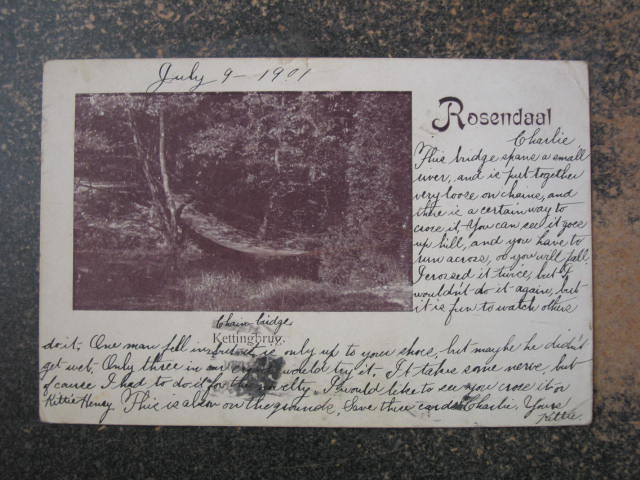 July 9 - 1901
Rosendaal
Charlie
This bridge spans a small
river, and is put together
very loose on chains, and
there is a certain way to
cross it. You can see it goes
up hill, and you have to
run across, or you will fall.
I crossed it twice, but I
wouldn't do it again, but
it is fun to watch others
Chain bridge
Kettingbrug.
do it. One man fell in, but it is only up to your shoes, but maybe he didn't
get wet. Only three in our would try it. It takes some nerve, but
of course I had to do it for the novelty. I would like to see you cross it or
Kittie Henry. This is also on the grounds. Save these cards Charlie. Yours
Kittie.